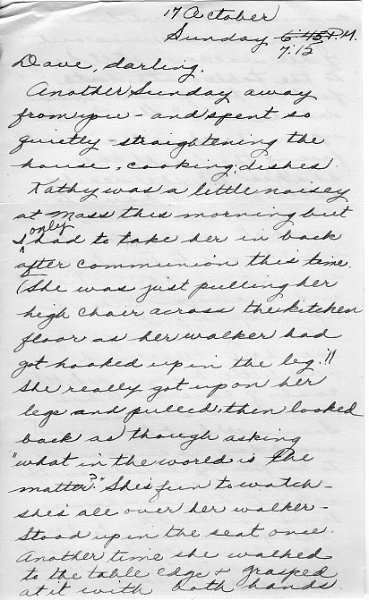 17 October
Sunday 6:45 P.M.
7:15
Dave, darling.
Another Sunday away
from you - and spent so
quietly - straightening the
house, cooking, dishes.
Kathy was a little noisey
at Mass this morning but
I only had to take her in back
after communion this time.
(She was just pulling her
high chair across the kitchen
floor as her walker had
got hooked up in the leg!!
She really got up on her
legs and pulled, then looked
back as though asking
"what in the world is the
matter?" She's fun to watch -
she's all over her walker -
Stood up in the seat once.
Another time she walked
to the table edge & grasped
at it with both hands